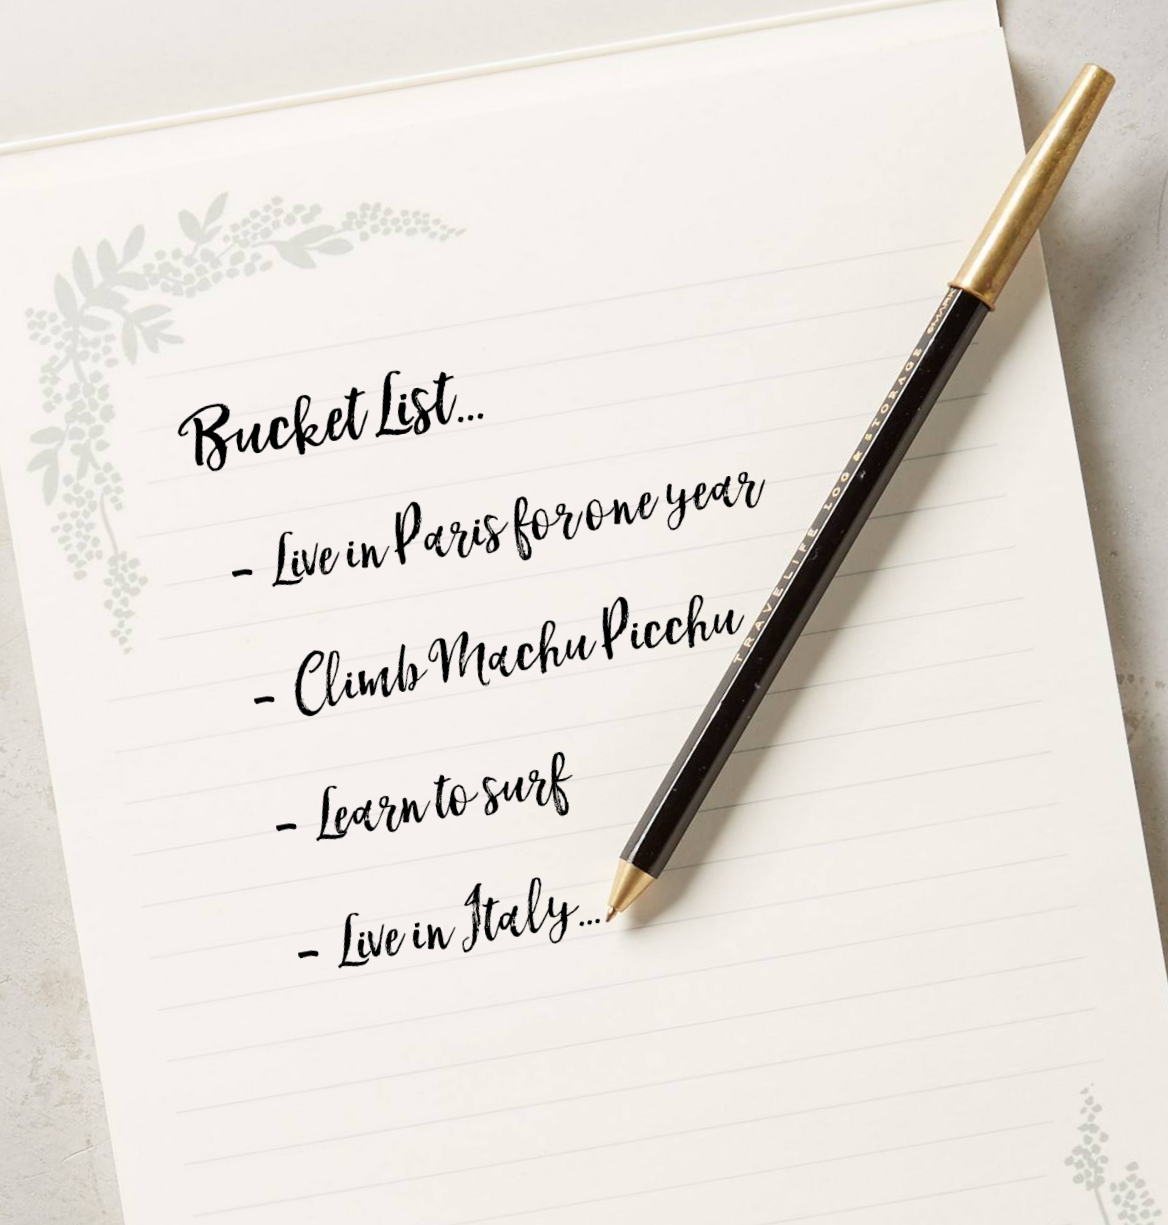 Bucket List...
- Live in Paris for one year
- Climb Machu Picchu
- Learn to surf
- Live in Italy...
TRAVELIFE LOG & STORAGE